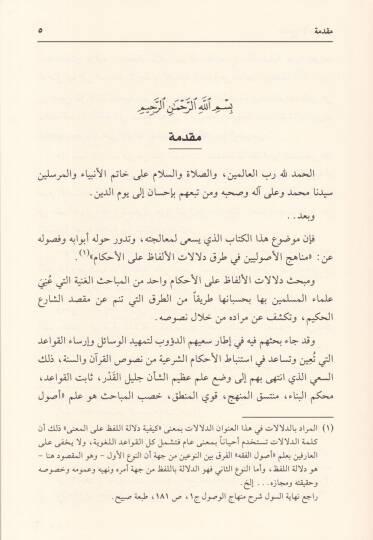 مقدمة ٥
بسم الله الرحمن الرحيم
مقدمة
الحمد لله رب العالمين، والصلاة والسلام على خاتم الأنبياء والمرسلين
سيدنا محمد وعلى آله وصحبه ومن تبعهم بإحسان إلى يوم الدين.
وبعد..
فإن موضوع هذا الكتاب الذي يسعى لمعالجته، وتدور حوله أبوابه وفصوله
عن: «مناهج الأصوليين في طرق دلالات الألفاظ على الأحكام»(١).
ومبحث دلالات الألفاظ على الأحكام واحد من المباحث الغنية التي عُنِيَ
علماء المسلمين بها بحسبانها طريقاً من الطرق التي تنم عن مقصد الشارع
الحكيم، وتكشف عن مراده من خلال نصوصه.
وقد جاء بحثهم فيه في إطار سعيهم الدؤوب لتمهيد الوسائل وإرساء القواعد
التي تُعين وتساعد في استنباط الأحكام الشرعية من نصوص القرآن والسنة، ذلك
السعي الذي انتهى بهم إلى وضع علم عظيم الشأن جليل القَدْر، ثابت القواعد،
محكم البناء، متسق المنهج، قوي المنطق، خصب المباحث هو علم «أصول
(١) المراد بالدلالات في هذا العنوان الدلالات بمعنى «كيفية دلالة اللفظ على المعنى» ذلك أن
كلمة الدلالات تستخدم أحياناً بمعنى عام فتشمل كل القواعد اللغوية، ولا يخفى على
العارفين بعلم «أصول الفقه» الفرق بين النوعين من جهة أن النوع الأول - وهو المقصود هنا -
هو دلالة اللفظ، وأما النوع الثاني فهو الدلالة باللفظ من جهة أمره ونهيه وعمومه وخصوصه
وحقيقته ومجازه... إلخ.
راجع نهاية السول شرح منهاج الوصول ج١، ص ١٨١، طبعة صبيح.